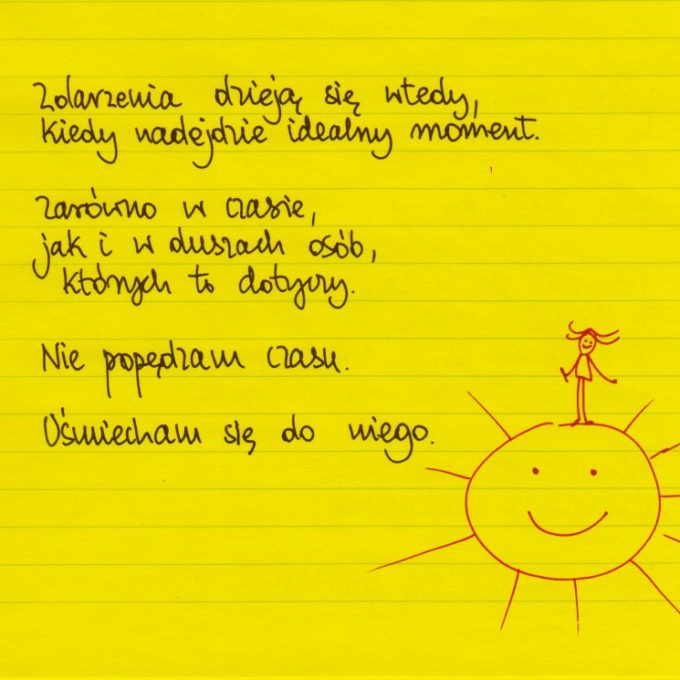 Zdarzenia dzieją się wtedy,
kiedy nadejdzie idealny moment.
Zarówno w czasie,
jak i w duszach osób,
których to dotyczy.
Nie popędzam czasu.
Uśmiecham się do niego.